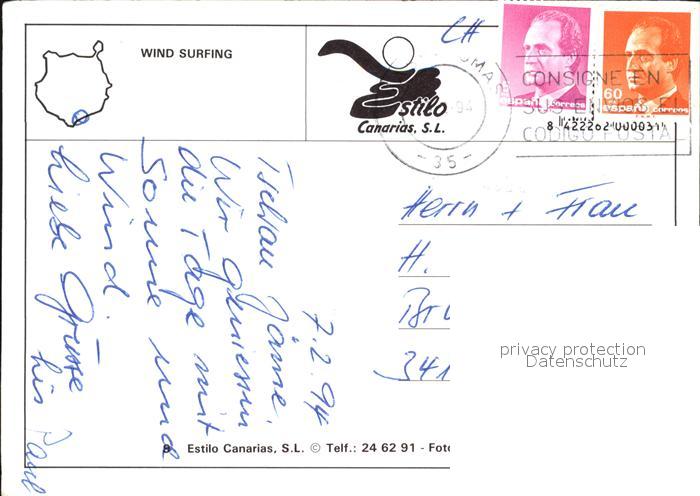 CH
WIND SURFING
Estilo
Canarias, S.L.
94
-35-
CONSIGNE EN
SUS ENVIOS EL
CODIGO POSTAL
España Correos
60
España Correos
8 422262 000034
Herrn + Frau
H.
341
privacy protection
Datenschutz
7.2.94
Tschau
Wir geniessen
die Tage mit
Sonne und
Wind.
Liebe Grüsse
Estilo Canarias, S.L. © Telf.: 24 62 91 - Foto